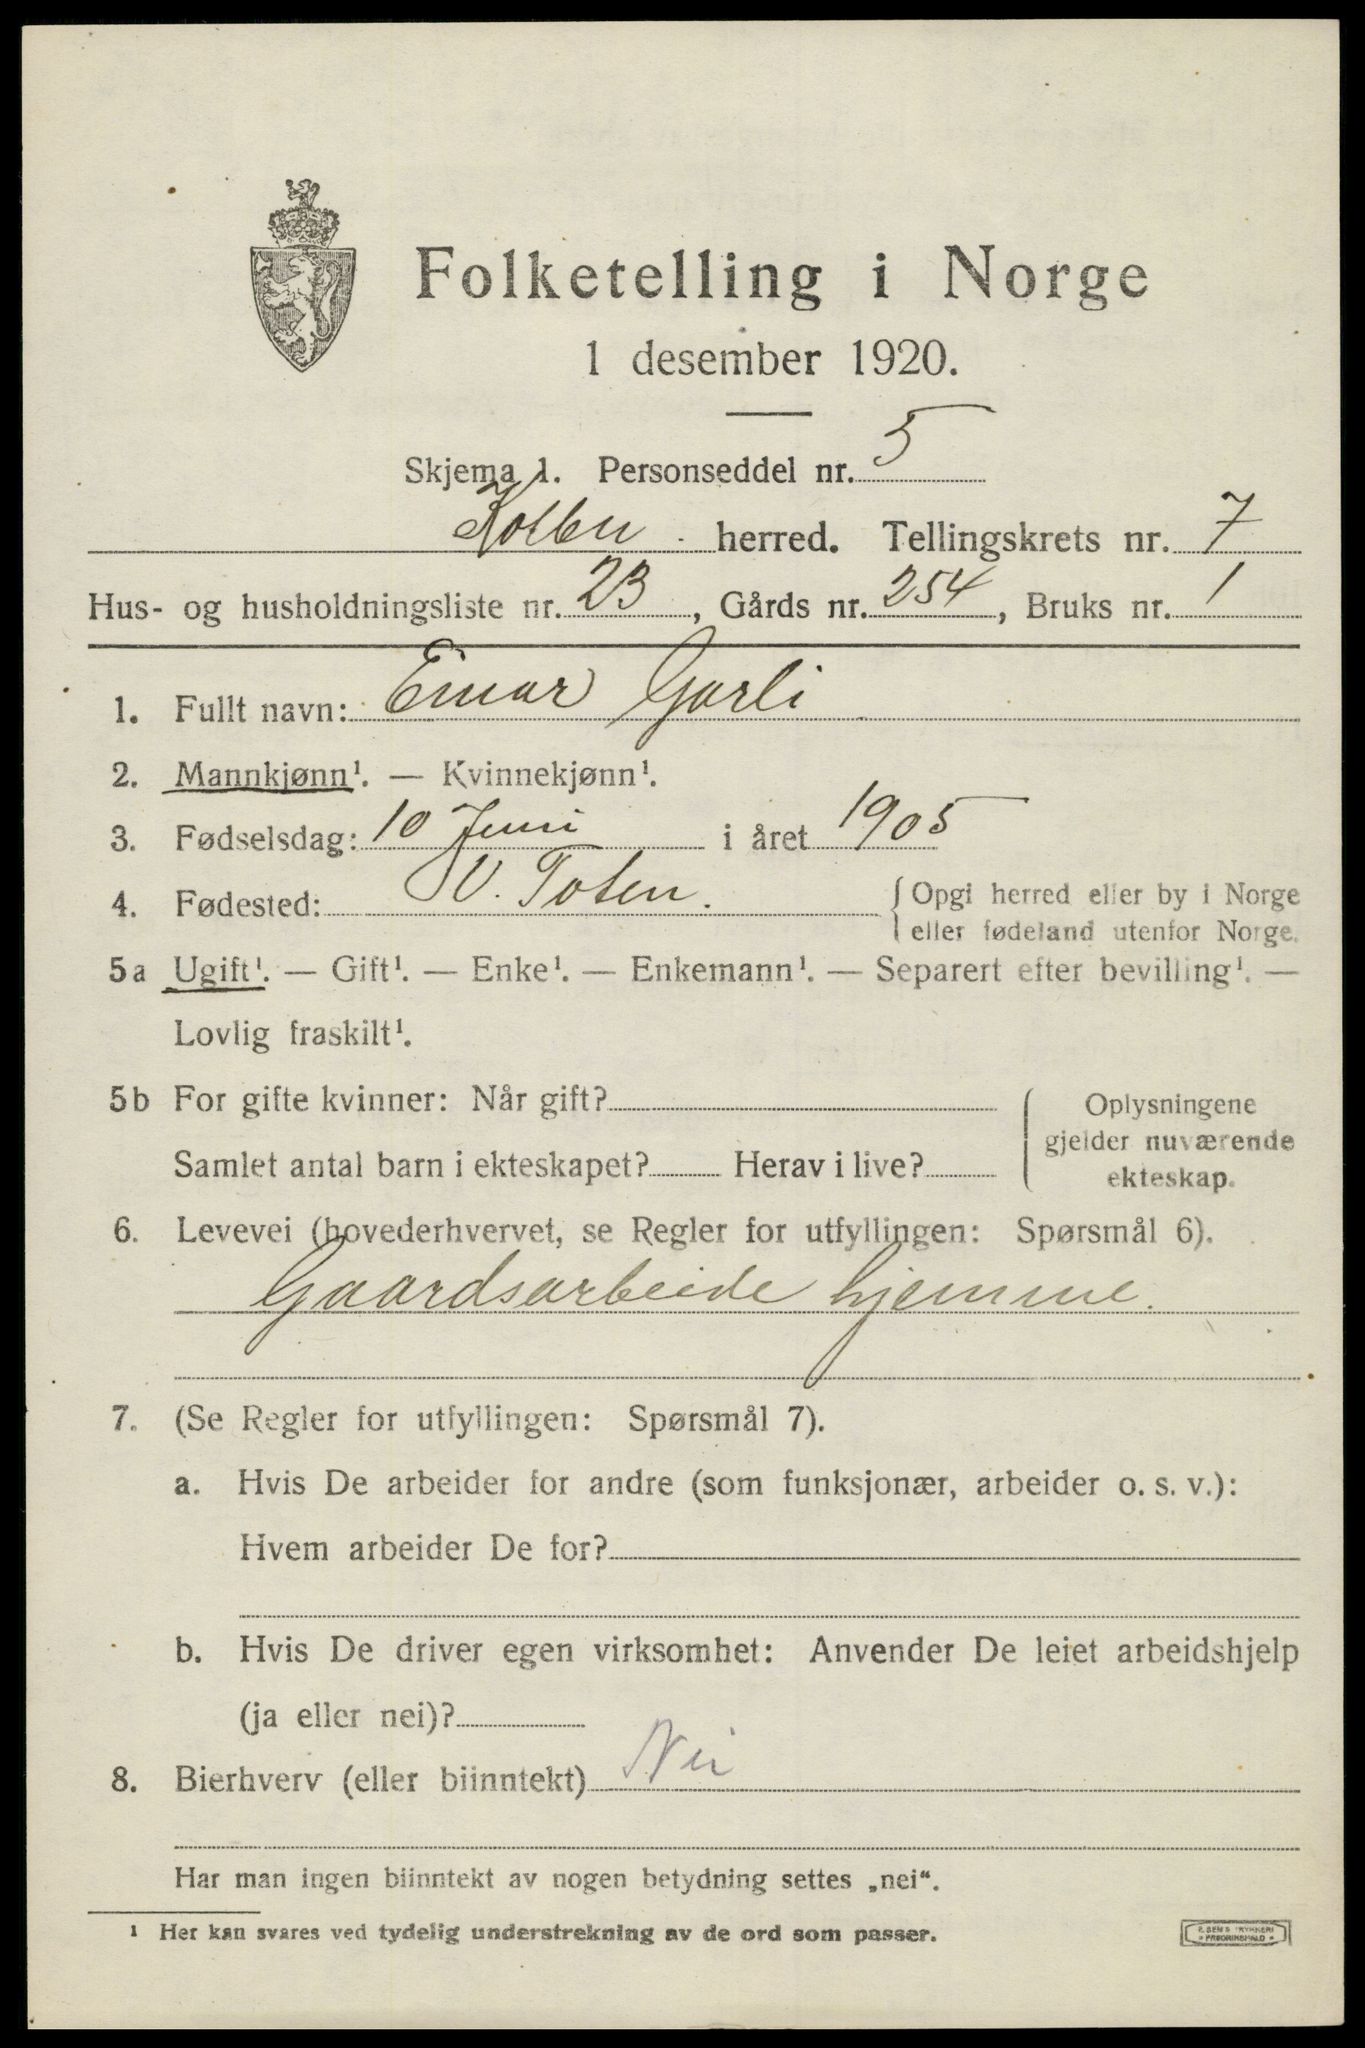 Folketelling i Norge
1 desember 1920.
Skjema 1. Personseddel nr. 5
Kolbu herred. Tellingskrets nr. 7
Hus- og husholdningsliste nr. 23, Gårds nr. 254, Bruks nr. 1
1. Fullt navn: Einar Garli
2. Mannkjønn¹. — Kvinnekjønn¹.
3. Fødselsdag: 10 Juni i året 1905
4. Fødested: V. Toten. { Opgi herred eller by i Norge
eller fødeland utenfor Norge.
5a Ugift¹. — Gift¹. — Enke¹. — Enkemann¹. — Separert efter bevilling¹. —
Lovlig fraskilt¹.
5b For gifte kvinner: Når gift?
Samlet antal barn i ekteskapet? Herav i live?
Oplysningene
gjelder nuværende
ekteskap.
6. Levevei (hovederhvervet, se Regler for utfyllingen: Spørsmål 6).
Gaardsarbeide hjemme.
7. (Se Regler for utfyllingen: Spørsmål 7).
a. Hvis De arbeider for andre (som funksjonær, arbeider o. s. v.):
Hvem arbeider De for?
b. Hvis De driver egen virksomhet: Anvender De leiet arbeidshjelp
(ja eller nei)?
8. Bierhverv (eller biinntekt) Nei
Har man ingen biinntekt av nogen betydning settes „nei“.
¹ Her kan svares ved tydelig understrekning av de ord som passer.